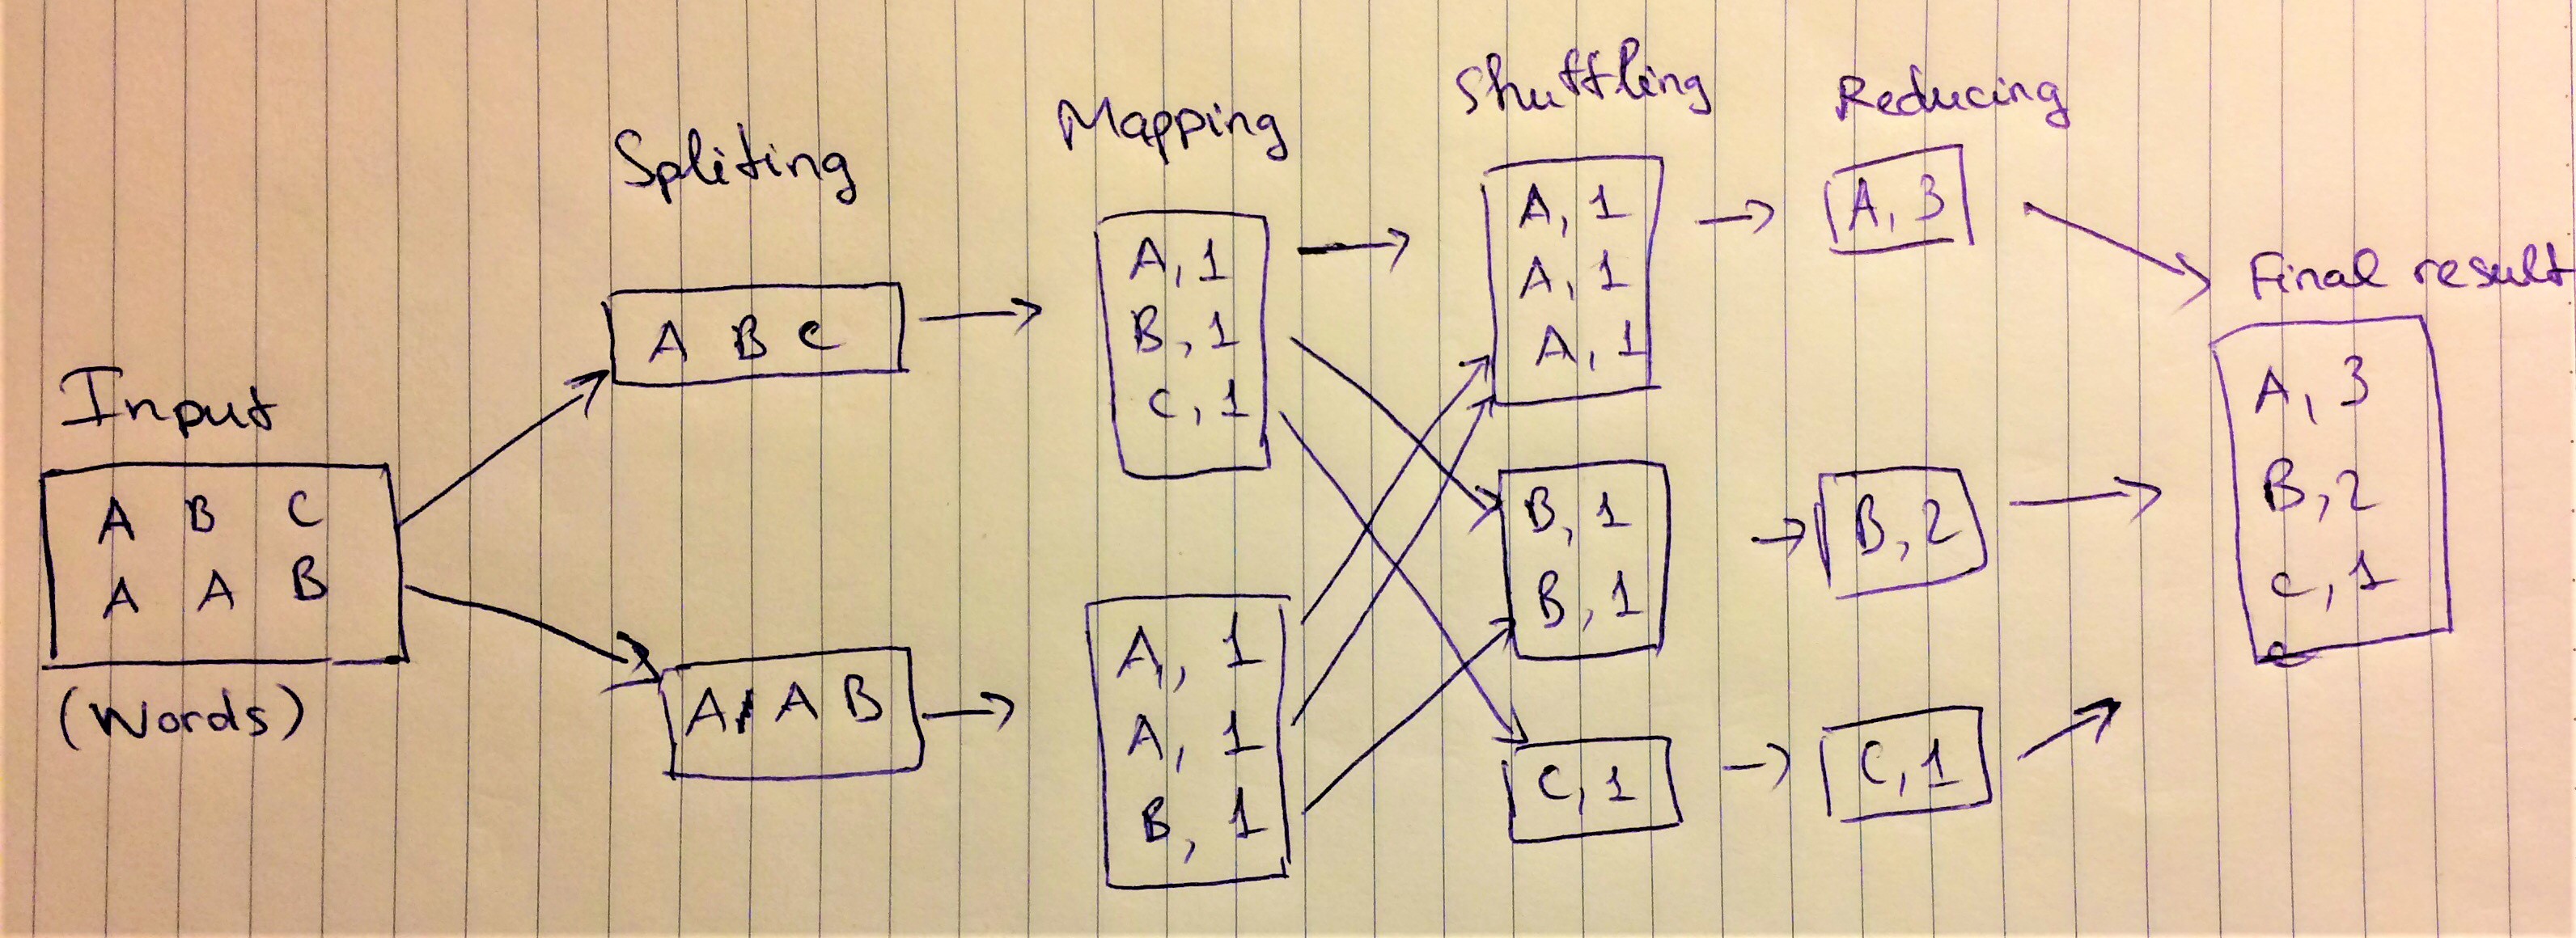 Input
A B C
A A B
(Words)
Spliting
A B C
A, A B
Mapping
A, 1
B, 1
C, 1
A, 1
A, 1
B, 1
Shuffling
A, 1
A, 1
A, 1
B, 1
B, 1
C, 1
Reducing
A, 3
B, 2
C, 1
Final result
A, 3
B, 2
C, 1